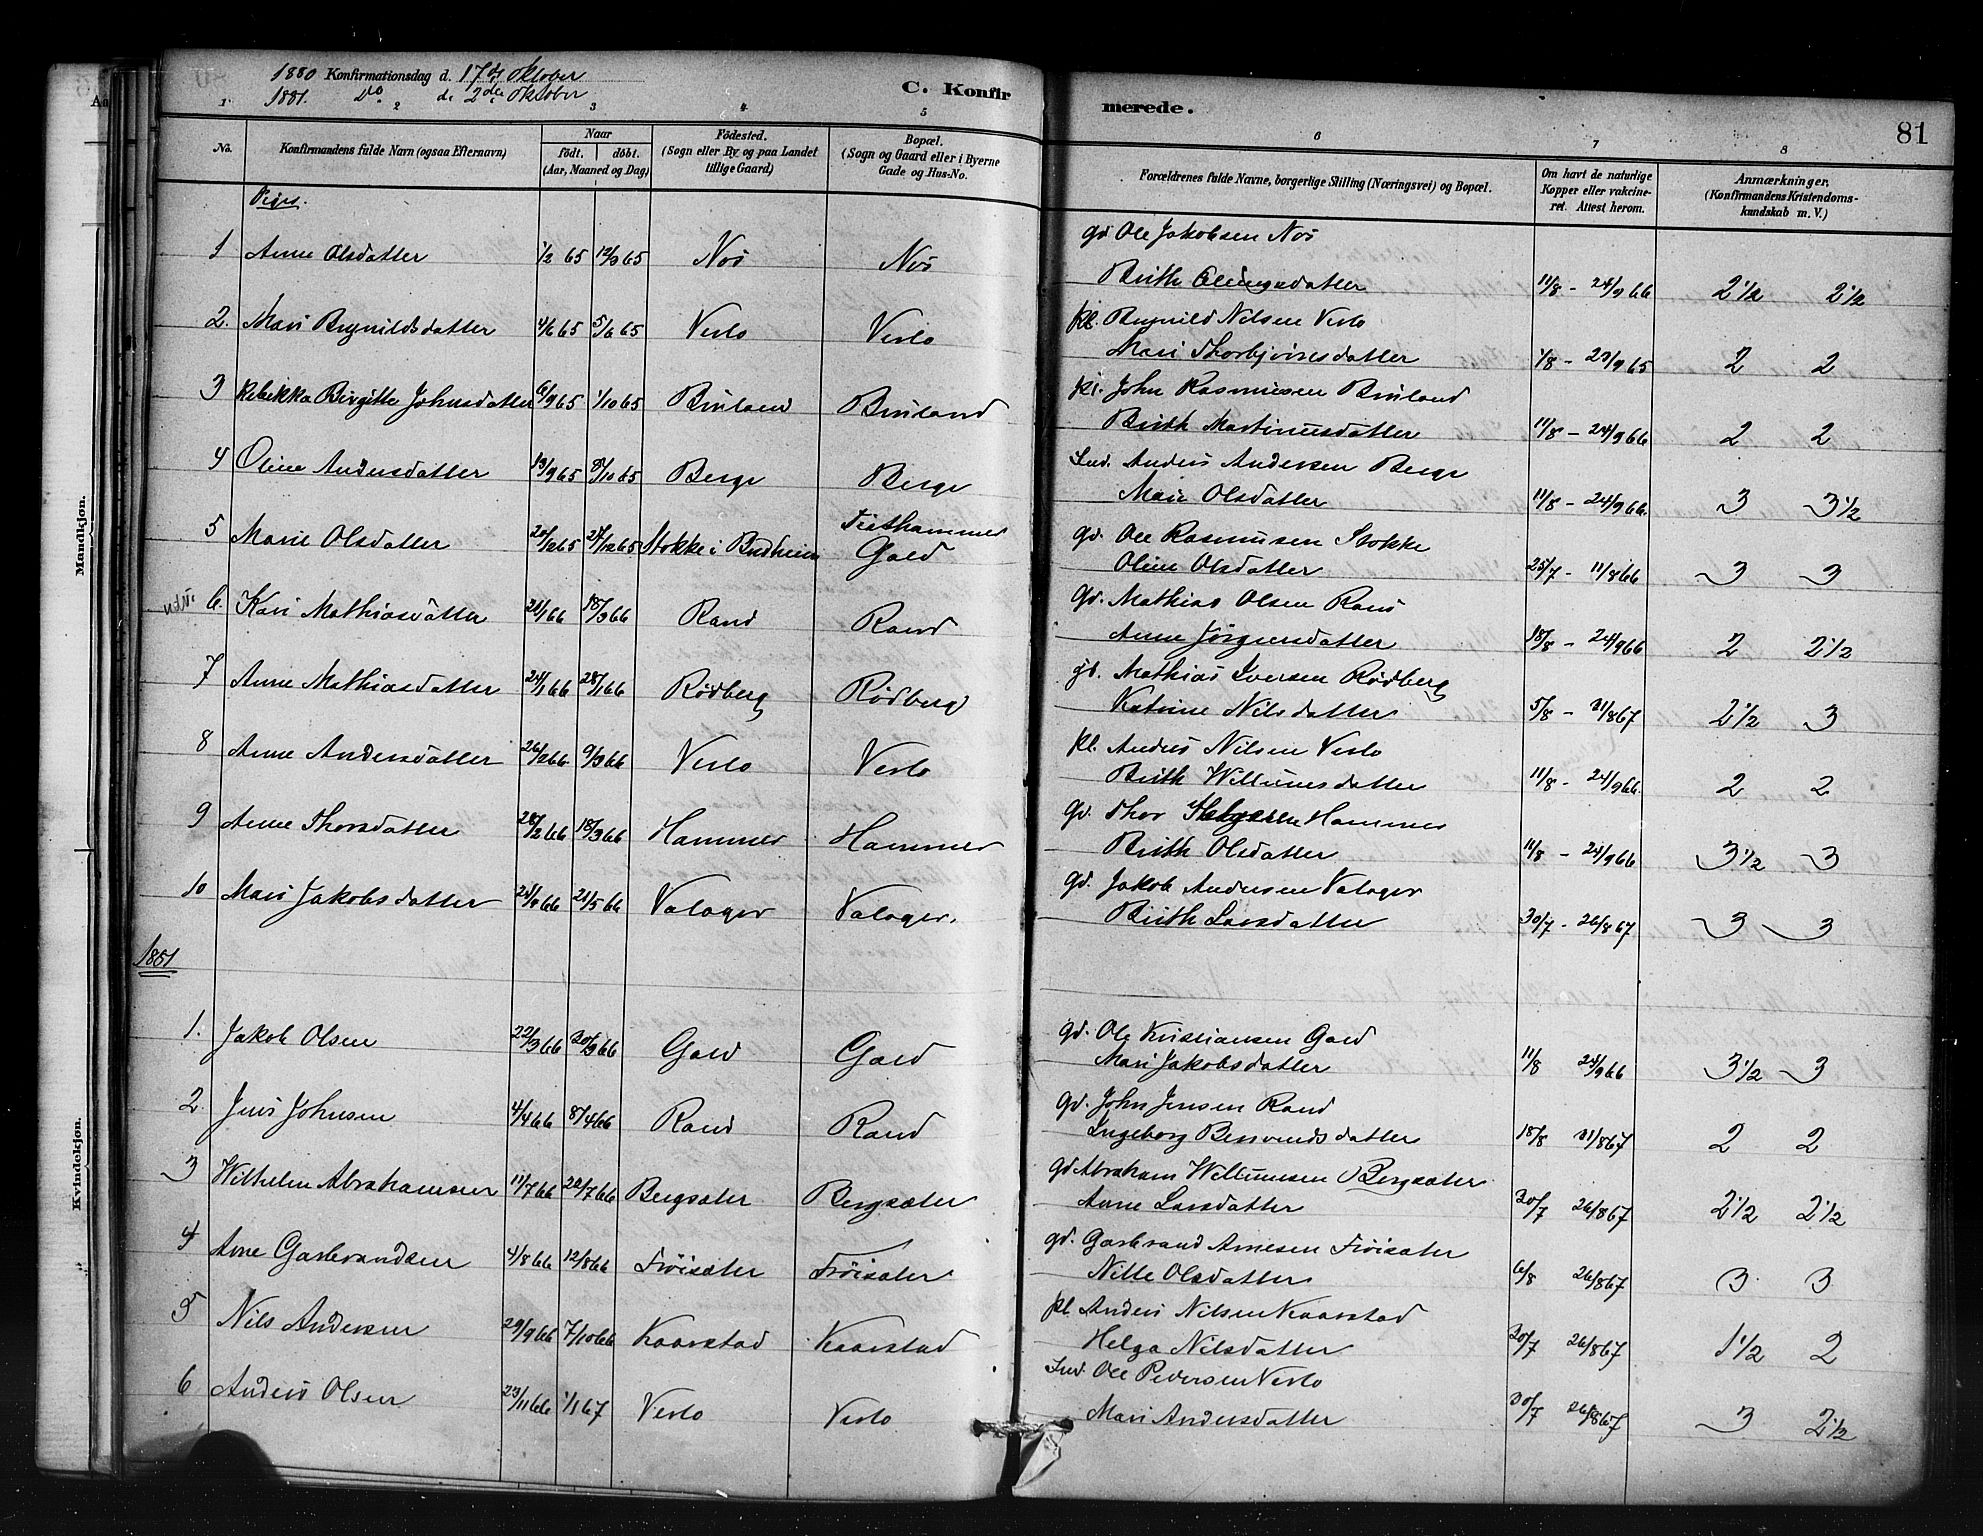 1880 Konfirmationsdag d. 17de Oktober
1881. Do. d. 2den Oktober
C. Konfirmerede.
81
1 2 3 4 5 6 7 8
No.
Konfirmandens fulde Navn (ogsaa Efternavn)
Naar
födt. | döbt.
(Aar, Maaned og Dag)
Födested.
(Sogn eller By og paa Landet
tillige Gaard)
Bopæl.
(Sogn og Gaard eller i Byerne
Gade og Hus-No.
Forældrenes fulde Navne, borgerlige Stilling (Næringsvei) og Bopæl.
Om havt de naturlige
Kopper eller vakcine-
ret. Attest herom.
Anmærkninger.
(Konfirmandens Kristendoms-
kundskab m. V.)
Mandkjön.
Kvindekjön.
Piger.
1 Anne Olsdatter 1/2 65 12/3 65 Nos Nos gd Ole Jakobsen Nos
Brith Ellingsdatter 11/8 - 24/9 66 2 1/2 2 1/2
2. Mari Brynildsdatter 4/6 65 5/6 65 Veslo Veslo pl. Brynild Nilsen Veslo
Mari Thorbjörnsdatter 1/8 - 23/9 65 2 2
3 Rebikka Birgitte Johnsdatter 6/9 65 1/10 65 Bruland Bruland pl. John Rasmusen Bruland
Brith Martinusdatter 11/8 - 24/9 66 2 2
4 Oline Andersdatter 19/9 65 8/10 65 Berge Berge Ind. Anders Andersen Berge
Mari Olsdatter 11/8 - 24/9 66. 3 3 1/2
5 Marie Olsdatter 20/12 65 24/12 65 Stokke i Indheim Gald gd. Ole Rasmusen Stokke
Oline Olsdatter 25/7 - 11/8 66 3 3
6. Kari Mathiasdatter 21/1 66 18/3 66 Rand Rand gd. Mathias Olsen Rand
Anne Jörgensdatter 18/8 - 24/9 66 2 2 1/2
7 Anne Mathiasdatter 24/1 66 28/1 66 Rödberg Rödberg gd. Mathias Iversen Rödberg
Katrine Nilsdatter 5/8 - 31/8 67 2 1/2 3
8 Anne Andersdatter 26/2 66. 9/3 66 Veslo Veslo pl. Anders Nilsen Veslo
Brith Willumsdatter 11/8 - 24/9 66. 2 2
9 Anne Thorsdatter 28/2 66 18/3 66 Hammer Hammer gd. Thor Helgesen Hammer
Brith Olsdatter 11/8 - 24/9 66 3 1/2 3
10 Mari Jakobsdatter 66 21/5 66 Valager Valager. gd. Jakob Andersen Valager
Brith Larsdatter 30/7 - 26/8 67 3 3
1881
1. Jakob Olsen 22/3 66 30/3 66 Gald Gald gd. Ole Kristiansen Gald
Mari Jakobsdatter 11/8 24/9 66 3 1/2 3
2. Jens Johnsen 4/4 66 8/4 66 Rand Rand gd. John Jensen Rand
Ingeborg Bersvendsdatter 18/8 31/8 67 2 2
3 Wilhelm Abrahamsen 11/7 66 22/7 66 Bergsæter Bergsæter gd Abraham Willumsen Bergsæter
Anne Larsdatter 30/7 26/8 67 2 1/2 2 1/2
4 Arne Gasbrandsen 4/8 66 12/8 66 Fröisæter Fröisæter gd. Gasbrand Arnesen Fröisæter
Nille Olsdatter 6/8 26/8 67 3 3
5 Nils Andersen 29/9 66 7/10 66 Kaarstad Kaarstad pl Anders Nilsen Kaarstad
Helga Nilsdatter 30/7 26/8 67 1 1/2 2
6 Anders Olsen 23/11 66 1/1 67 Veslo Veslo Ind Ole Pedersen Veslo
Mari Andersdatter 30/7 26/8 67 3 2 1/2